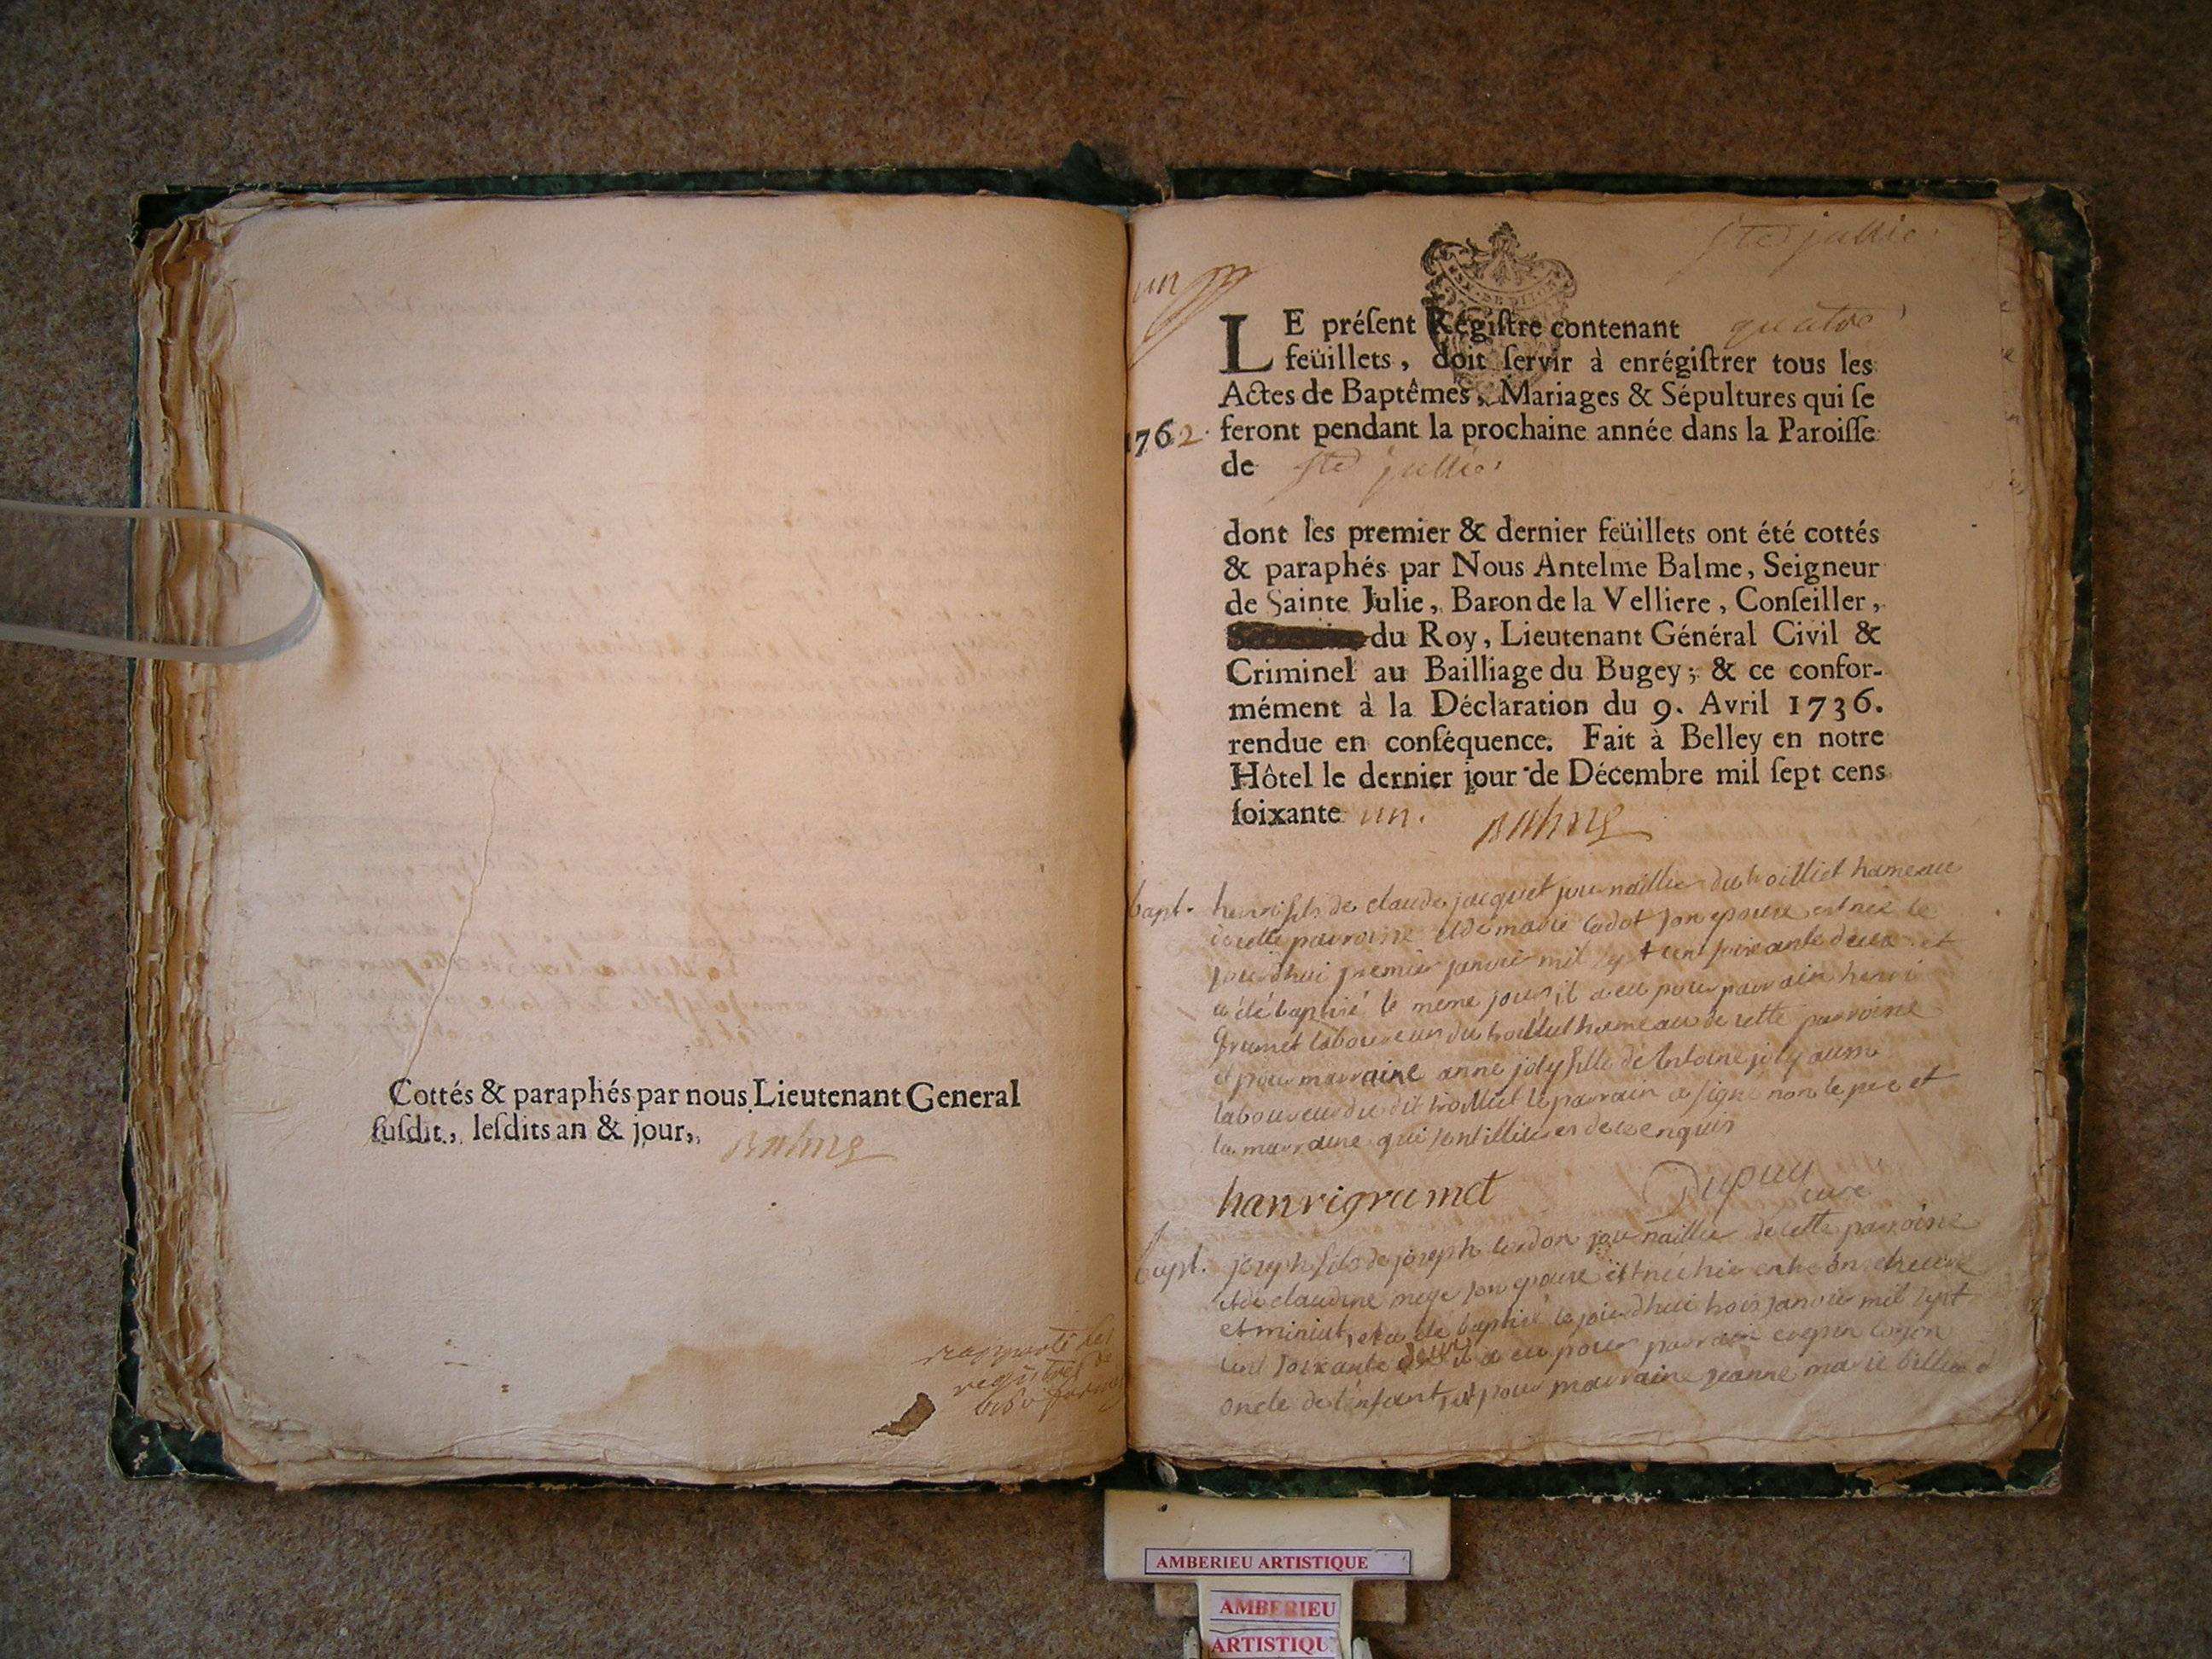 Cottés & paraphés par nous Lieutenant General
ſuſdit, leſdits an & jour,
Balme
rapporté les
un
Ste jullie
LE préſent Régiſtre contenant quatre
feüillets, doit ſervir à enrégiſtrer tous les
Actes de Baptêmes, Mariages & Sépultures qui ſe
1762. feront pendant la prochaine année dans la Paroiſſe
de Ste jullie
dont les premier & dernier feüillets ont été cottés
& paraphés par Nous Antelme Balme, Seigneur
de Sainte Julie, Baron de la Velliere, Conſeiller,
du Roy, Lieutenant Général Civil &
Criminel au Bailliage du Bugey; & ce confor-
mément à la Déclaration du 9. Avril 1736.
rendue en conſéquence. Fait à Belley en notre
Hôtel le dernier jour de Décembre mil ſept cens
ſoixante un. Balme
bapt. henri fils de claude jacquet journallier du trolliet hameau
de cette parroisse et de marie son epouse est né le
jourdhui premier janvier mil sept cent soixante deux et
a été baptisé le meme jour, il a eu pour parrain henri
grumet laboureur du trolliet hameau de cette parroisse
et pour marraine anne joly fille de Antoine joly aussi
laboureur du dit trolliet le parrain a signé non le pere et
la marraine qui sont illiteres de ce enquis
hanrigrumet Dupuy
curé
bapt. joseph fils de joseph cordon journallier de cette parroisse
et de claudine son epouse est né hier entre onze heure
et miniut, et a été baptisé le jourdhui trois janvier mil sept
cent soixante deux il a eu pour parrain
oncle de l'enfant, et pour marraine jeanne marie
AMBERIEU ARTISTIQUE
AMBERIEU
ARTISTIQU